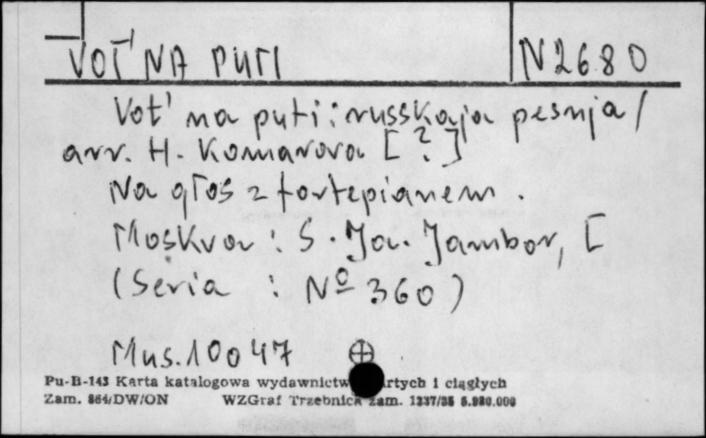 VOT' NA PUTI N2680
Vot' na puti : russkaja pesnja /
arr. H. Komarova [?]
Na głos z fortepianem.
Moskva : S. Ja. Jambor, [
(Seria : Nº 360)
Mus. 10047
Pu-B-143 Karta katalogowa wydawnictw artych i ciągłych
Zam. 864/DW/ON WZGraf Trzebnica zam. 1337/85 5.980.000